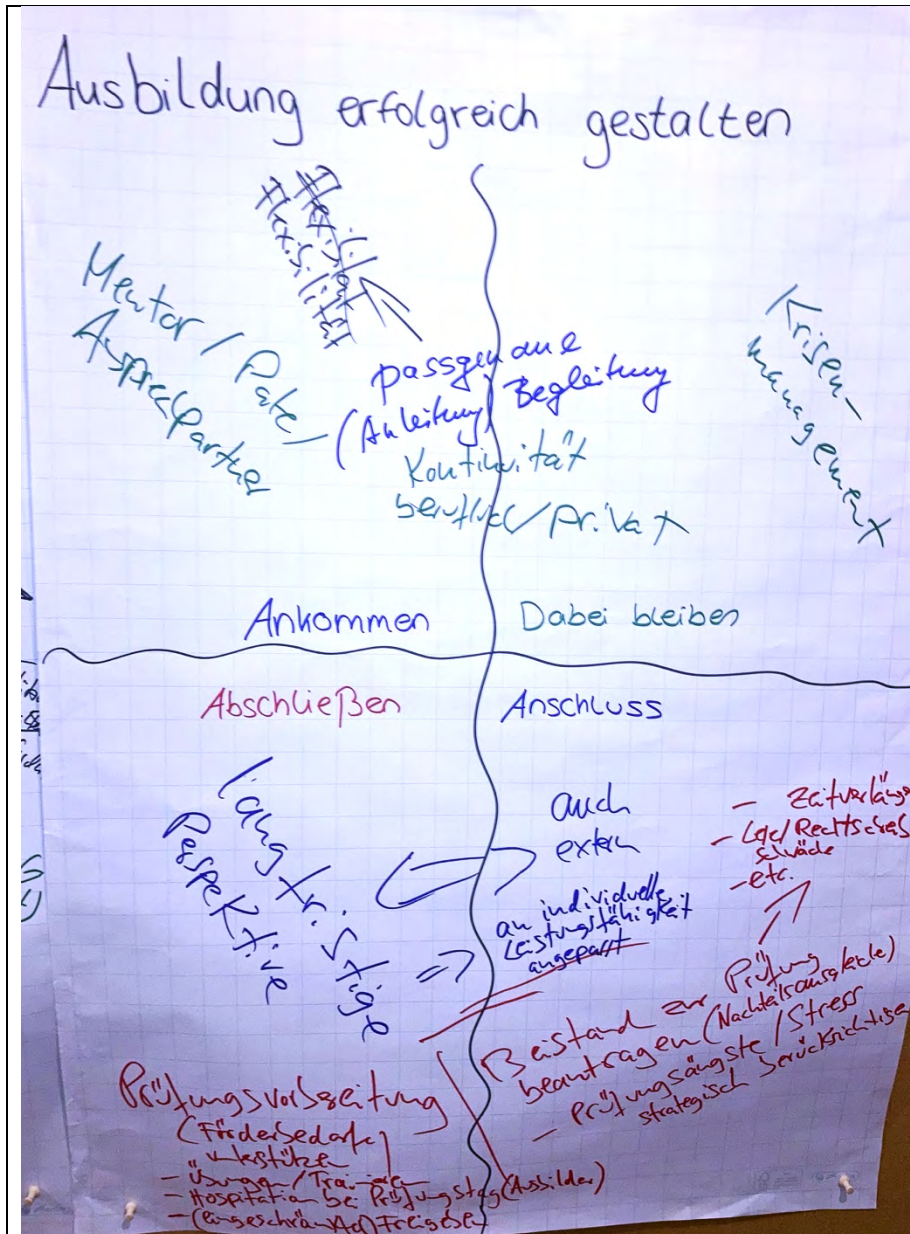 Ausbildung erfolgreich gestalten
Flexibilität
Mentor / Pate /
passgenaue
(Anleitung) Begleitung
Kontinuität
beruflich / privat
Krisen-
management
Ankommen
Dabei bleiben
Abschließen
Anschluss
langfristige
Perspektive
auch
extern
an individuelle
Leistungsfähigkeit
angepasst
- Zeitverlänge
schwäche
- etc.
Beistand zur Prüfung
beantragen (Nachteilsausgleiche)
- Prüfungsängste / Stress
strategisch berücksichtigen
Prüfungsvorbereitung
(Förderbedarfe)
- Übungen / Trainieren
- Hospitation bei Prüfungstag (Ausbilder)